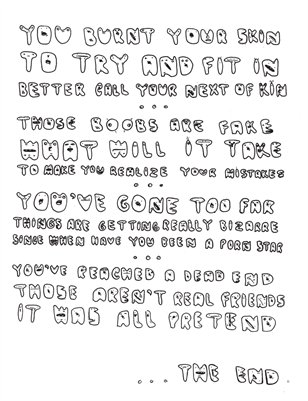 YOU BURNT YOUR SKIN
TO TRY AND FIT IN
BETTER CALL YOUR NEXT OF KIN
...
THOSE BOOBS ARE FAKE
WHAT WILL IT TAKE
TO MAKE YOU REALIZE YOUR MISTAKES
...
YOU'VE GONE TOO FAR
THINGS ARE GETTING REALLY BIZARRE
SINCE WHEN HAVE YOU BEEN A PORN STAR
...
YOU'VE REACHED A DEAD END
THOSE AREN'T REAL FRIENDS
IT WAS ALL PRETEND
... THE END